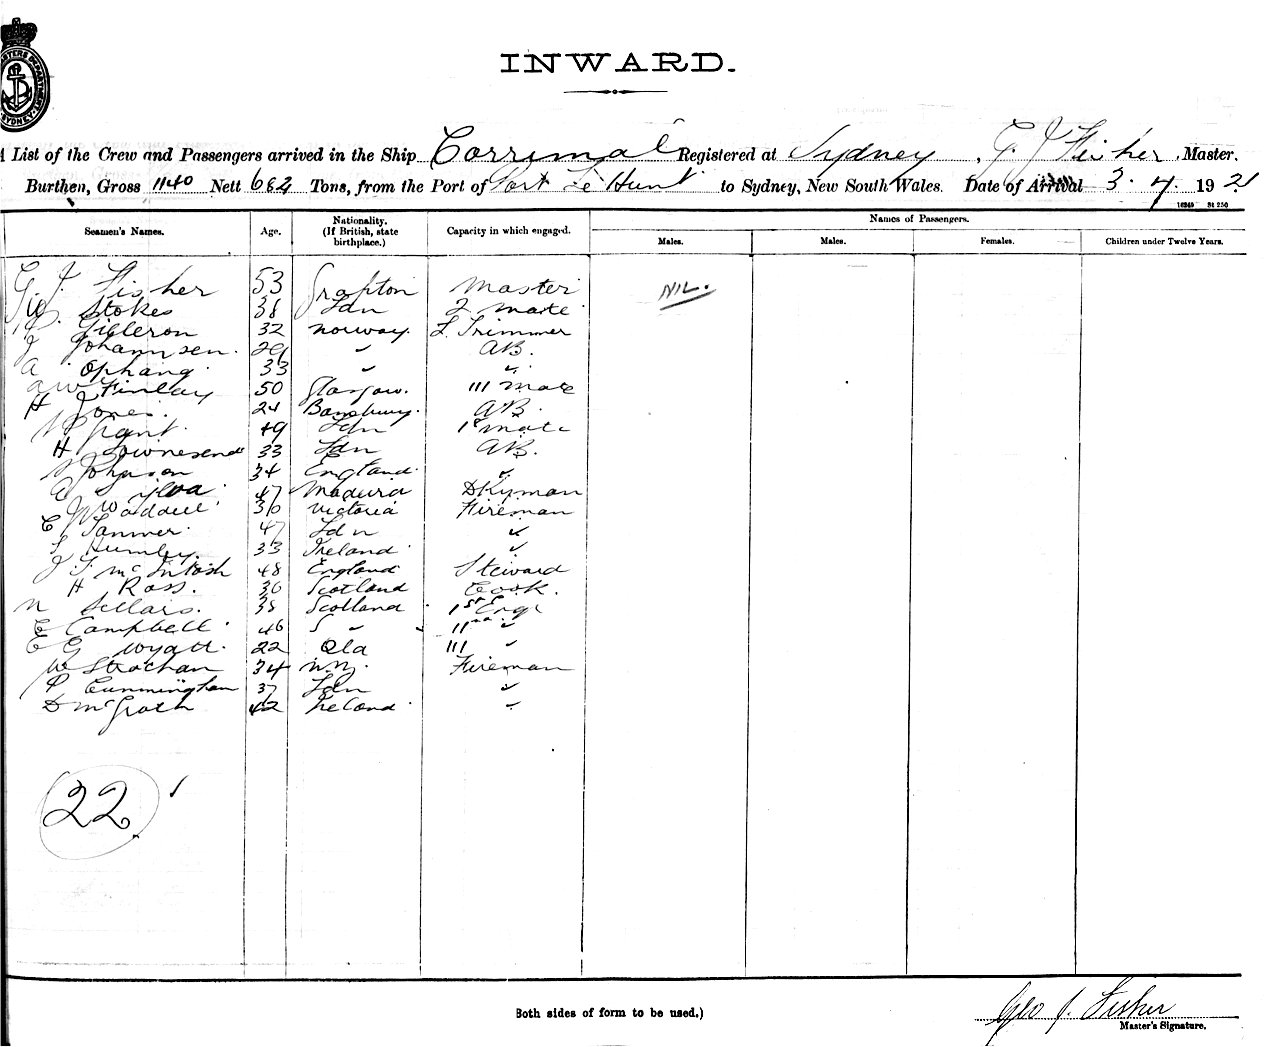 INWARD.
List of the Crew and Passengers arrived in the Ship Corrimal Registered at Sydney, G. J Fisher, Master.
Burthen, Gross 1140 Nett 682 Tons, from the Port of Port Le Hunt to Sydney, New South Wales. Date of Arrival 3. 7. 1921
Seamen's Names. Age. Nationality. (If British, state birthplace.) Capacity in which engaged. Names of Passengers.
Males. Males. Females. Children under Twelve Years.
G. J. Fisher 53 Grafton Master NIL.
Stokes 38 Ldn 2 Mate
32 Norway. Trimmer
J Johannsen. 29 " AB.
A Ophang 33 "
A W Finlay 50 Glasgow. III Mate
H Jones. 24 AB.
Grant. 49 Ldn 1st Mate
H Townesend 33 Ldn AB.
Johnson 34 England. "
Sylva 47 Madeira DKyman
Waddell 36 Victoria Fireman
C Tanner. 47 Ldn "
33 Ireland. "
J F McIntosh 48 England Steward
H Ross. 36 Scotland Cook.
N Sellars. 38 Scotland 1st Engr
C Campbell. 46 S " II nd "
E G Wyatt. 22 Qld III "
W Strachan 34 N.Z. Fireman
P Cunningham 37 Ldn "
D McGrath 42 Ireland. "
22
Both sides of form to be used.)
Geo J. Fisher
Master's Signature.